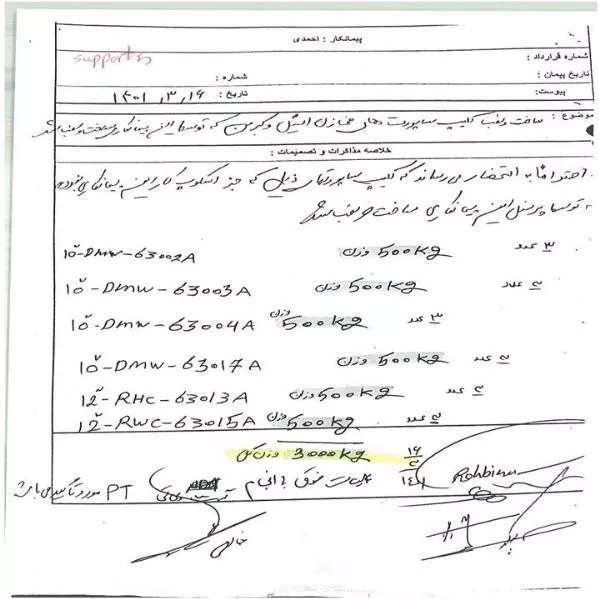 پیمانکار : احمدی
supports
شماره قرارداد :
تاریخ پیمان :
شماره :
پیوست:
تاریخ : ۱۴۰۱, ۳, ۱۶
موضوع : ساخت و نصب کلیپ ساپورت های مخازن استیل و کربن که توسط این پیمانکاری ساخت و نصب شد
خلاصه مذاکرات و تصمیمات :
احتراماً به استحضار می رساند که کلیپ ساپورتهای ذیل که جز اسکوپ کار این پیمانکاری نبوده
توسط پرسنل این پیمانکاری ساخت و نصب شد
10"-DMW-63002A وزن 500kg ۳ عدد
10"-DMW-63003A وزن 500kg عدد
10"-DMW-63004A وزن 500kg ۳ عدد
10"-DMW-63017A وزن 500kg عدد
12"-RHC-63013A وزن 500kg عدد
12"-RWC-63015A وزن 500kg عدد
وزن کل 3000kg
۱۶
۳
۱۴۰۱
فوق با انجام PT مورد تأیید می باشد